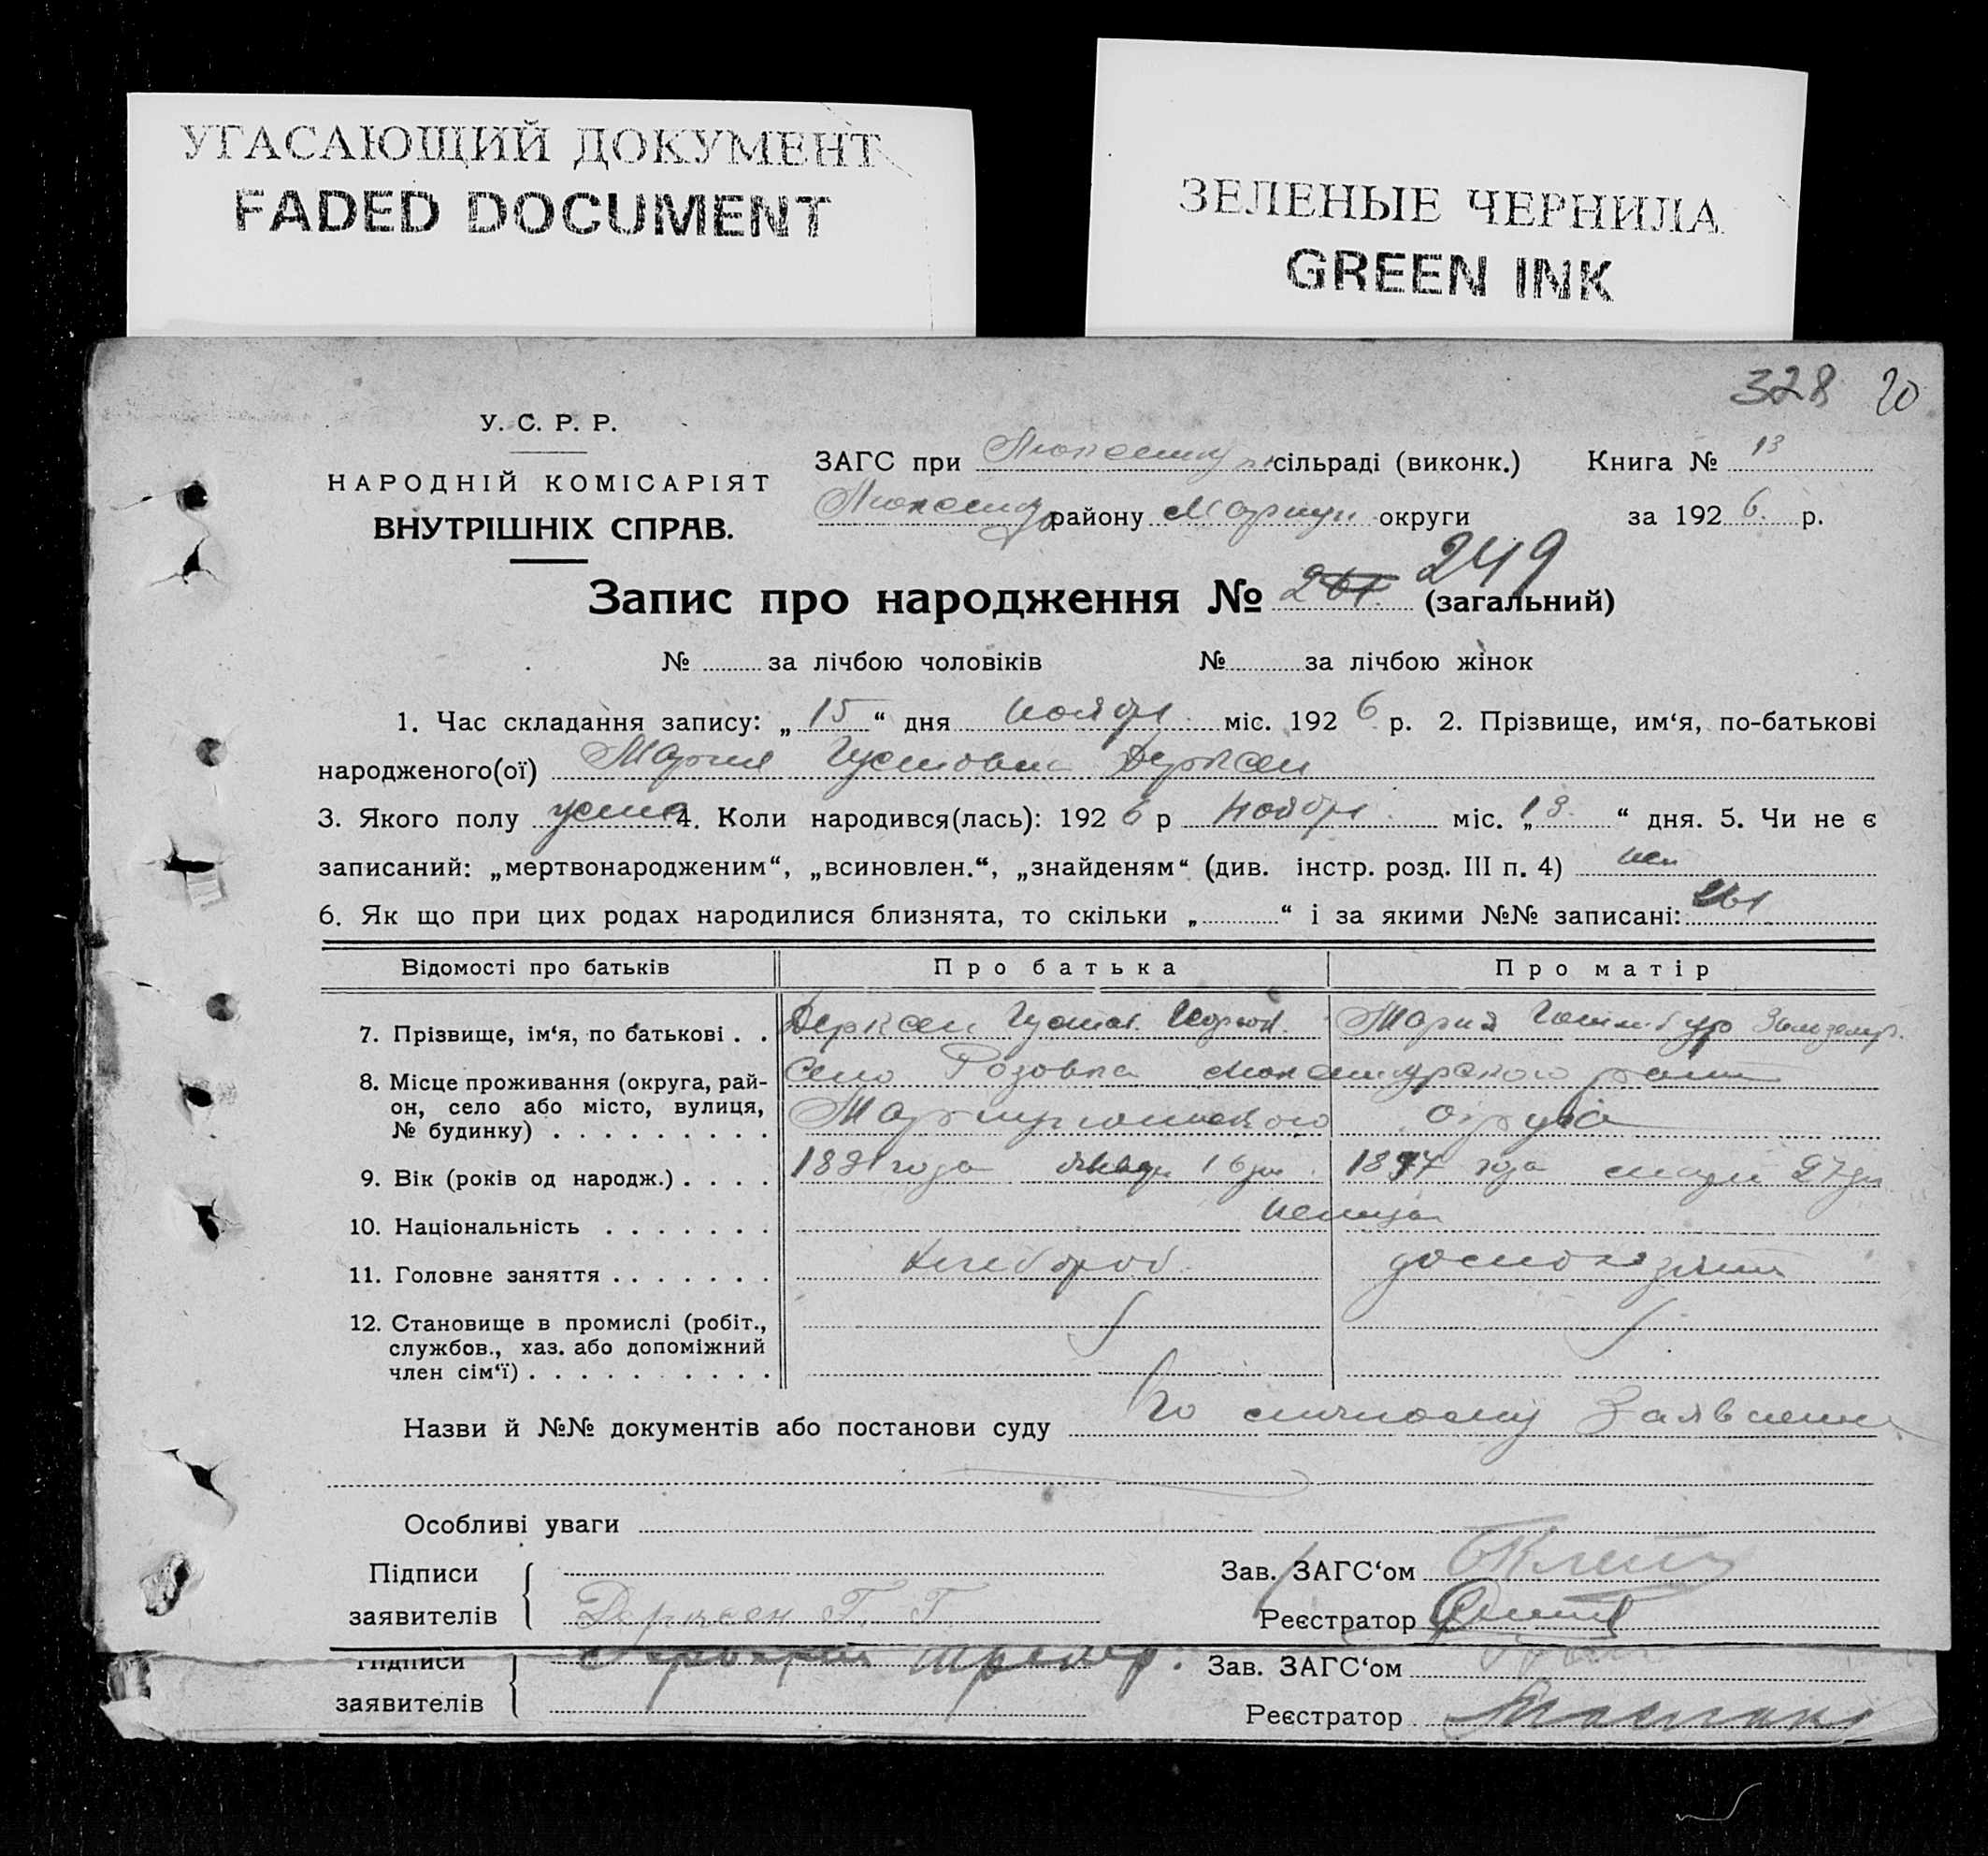 УГАСАЮЩИЙ ДОКУМЕНТ
FADED DOCUMENT
ЗЕЛЕНЫЕ ЧЕРНИЛА
GREEN INK
328 20
У. С. Р. Р.
НАРОДНІЙ КОМІСАРІЯТ
ВНУТРІШНІХ СПРАВ.
ЗАГС при сільраді (виконк.) Книга № 13
району Мариуп округи за 1926 р.
Запис про народження № 261 249 (загальний)
№ за лічбою чоловіків № за лічбою жінок
1. Час складання запису: „ 15 “ дня ноябр міс. 1926 р. 2. Прізвище, им‘я, по-батькові
народженого(ої) Мария Густовна Дерксен
3. Якого полу 4. Коли народився(лась): 1926 р ноябр міс. „ 13 “ дня. 5. Чи не є
записаний: „мертвонародженим“, „всиновлен.“, „знайденям“ (див. інстр. розд. III п. 4)
6. Як що при цих родах народилися близнята, то скільки „ “ і за якими №№ записані:
Відомості про батьків Про батька Про матір
7. Прізвище, ім‘я, по батькові . . Дерксен Густав. Мария
8. Місце проживання (округа, рай- Село Розовка
он, село або місто, вулиця, Мариупольского округа
№ будинку) . . . . . . . . .
9. Вік (років од народж.) . . . . года 16 дн 1897 года 27 дн
10. Національність . . . . . . .
11. Головне заняття . . . . . . . хлебороб
12. Становище в промислі (робіт.,
службов., хаз. або допоміжний
член сім‘ї) . . . . . . . . . .
Назви й №№ документів або постанови суду По личному Заявлению
Особливі уваги
Підписи Зав. ЗАГС‘ом
заявителів Дерксен Г. Г Реєстратор
Підписи Зав. ЗАГС‘ом
заявителів Реєстратор